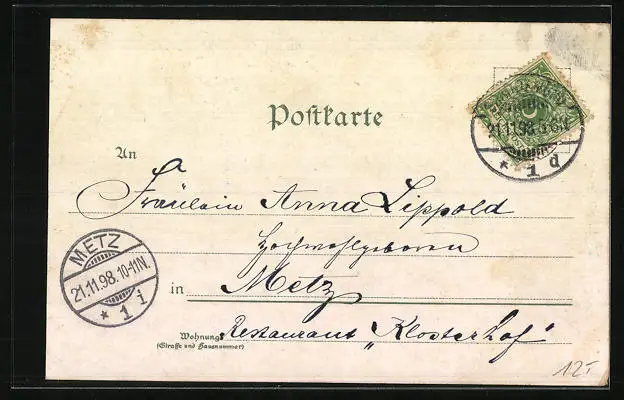 Postkarte
An
Fräulein Anna Lippold
Hochwohlgeboren
in Metz
Wohnung Restaurant „Klosterhof“
(Straße und Hausnummer)
21.11.98.
* 1 d
METZ
21.11.98.10-11N.
* 1 i
12.-